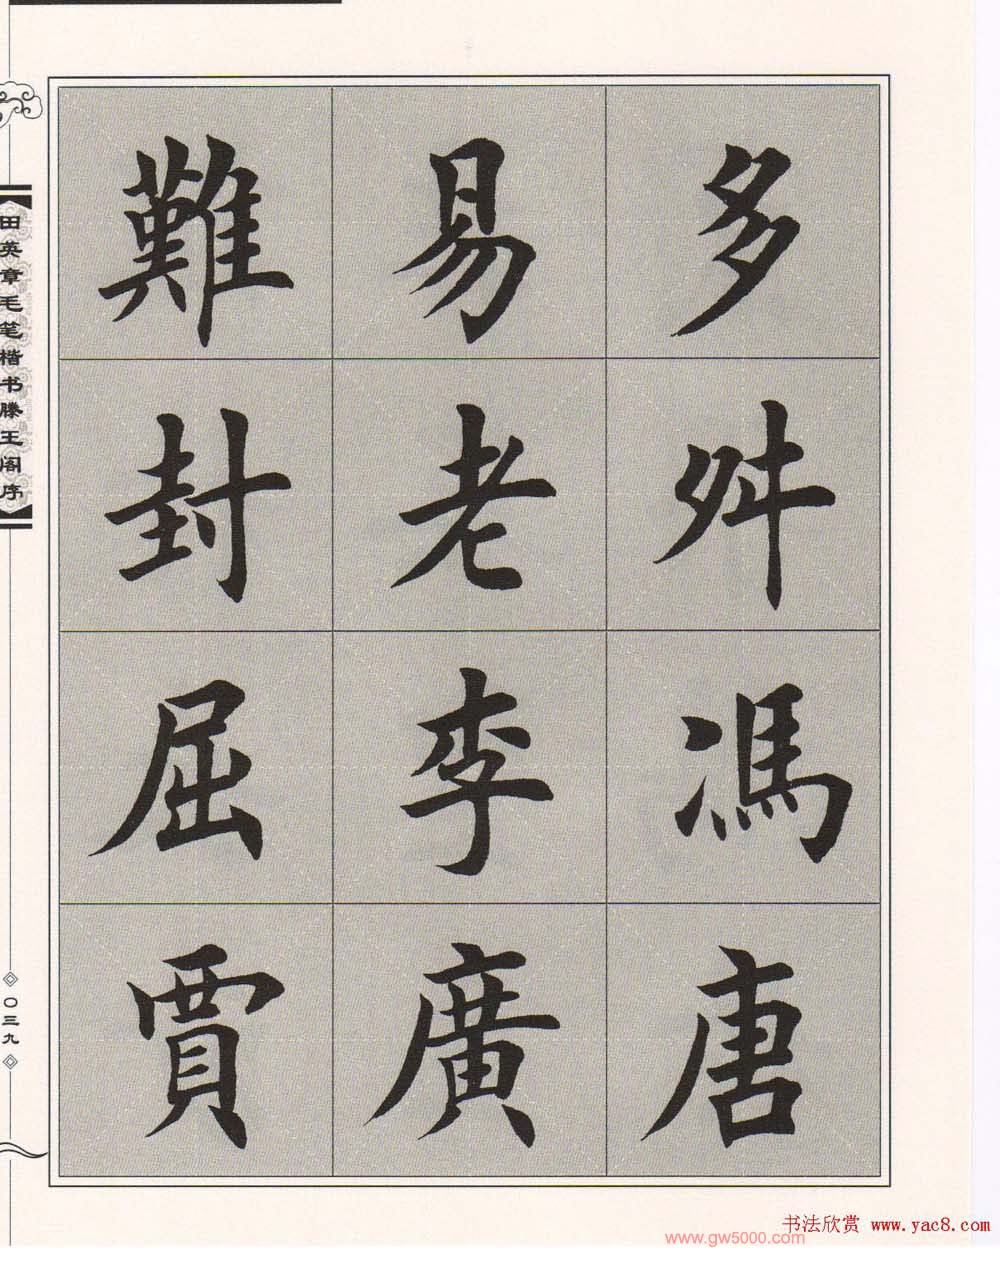 多舛馮唐
易老李廣
難封屈賈
田英章毛笔楷书滕王阁序
〇三九
书法欣赏 www.yac8.com
www.gw5000.com